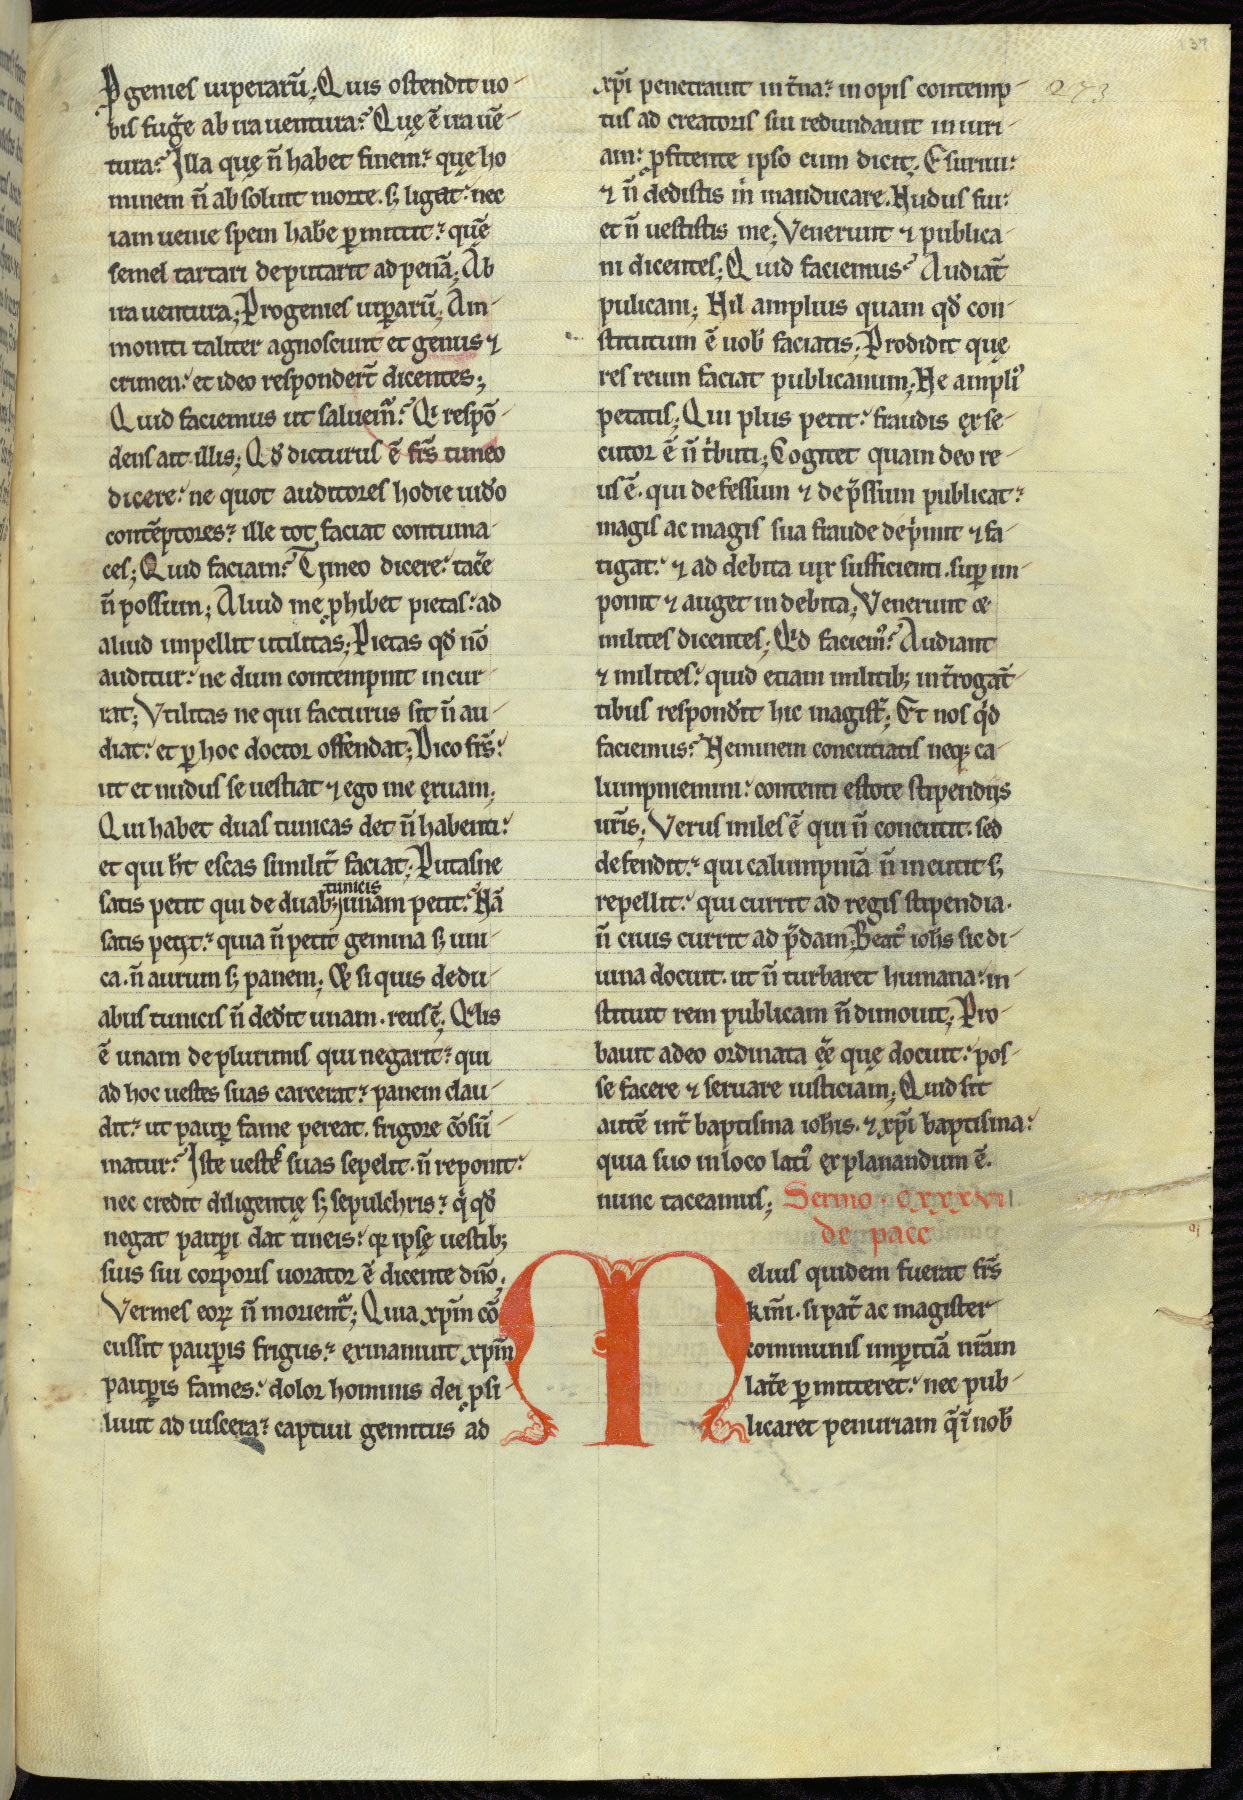 137
273
Pgenies uiperarū; Quis ostendit uo-
bis fug̃e ab ira uentura? Quę ē ira uē-
tura? Illa quę ñ habet finem? quę ho
minem ñ absoluit morte. sʒ ligat: nec
iam uenie spem hab̃e ꝑmittit? quē
semel tartari deputarit ad penā; Ab
ira uentura; Progenies uiꝑarū; Am-
moniti taliter agnoscunt et genus ⁊
crimen: et ideo respondert̃ dicentes;
Quid faciemus ut saluem̃? At respō-
dens ait illis; Qd̃ dicturus ē fr̃s timeo
dicere: ne quot auditores hodie uid̃o
contēptores? ille tot faciat contuma-
ces; Quid faciam? Timeo dicere: tac̃e
ñ possum; Aliud me ꝓhibet pietas: ad
aliud impellit utilitas; Pietas qd̃ nō
auditur: ne dum contempnit incur
rat; Vtilitas ne qui facturus sit ñ au-
diat: et ꝑ hoc doctor offendat; Dico fr̃s:
ut et nudus se uestiat ⁊ ego me ęruam;
Qui habet duas tunicas det ñ habenti:
et qui ht̃ escas similit̃ faciat; Putasne
satis petit qui de duabʒ tunicis unam petit? Nā
satis petit? quia ñ petit gemina sʒ uni-
ca. ñ aurum sʒ panem; Qd̃ si quis de du-
abus tunicis ñ ded̃it unam. reus ē; Qalis
ē unam de plurimis qui negarit? qui
ad hoc uestes suas carcerat? panem clau-
dit? ut pauꝑ fame pereat. frigore cōsū-
matur? Iste uestes suas sepelit. ñ reponit:
nec credit diligentię sʒ sepulchris? q̃ qd̃
negat pauꝑi dat tineis: qr ipsę uestibʒ
suis sui corporis uorator ē dicente dño.
Vermes eoꝝ ñ morient̃; Quia xp̃m cō-
cussit pauꝑis frigus? exinaniuit xp̃m
pauꝑis fames: dolor hominis dei ꝑsi-
luit ad uiscera? captiui gemitus ad
xp̃i penetrauit int̃na? inopis contemp-
tus ad creatoris sui redundauit iniuri-
am: ꝓfitente ipso cum dicit; Esuriui:
⁊ ñ dedistis m̃ manducare. Nudus fui:
et ñ uestistis me; Venerunt ⁊ publica-
ni dicentes; Quid faciemus? Audiat̃
puplicani; Nil amplius quam qd̃ con-
stitutum ē uob̃ faciatis; Prodidit quę
res reum faciat publicanum; Ne ampliꝰ
petatis; Qui plus petit: fraudis exse-
cutor ē ñ t̃buti; Cogitet quam deo re-
us ē. qui defessum ⁊ dep̃ssum publicat?
magis ac magis sua fraude dep̃mit ⁊ fa-
tigat: ⁊ ad debita uix sufficienti. suꝑ im-
ponit ⁊ auget indebita; Venerunt &
milites dicentes; Qid faciemꝰ? Audiant
⁊ milites: quid etiam militibʒ int̃rogat̃-
tibus respond̃it hic magist̃; Et nos q̃d
faciemus? Neminem concutiatis neqʒ ca-
lumpniemini: contenti estote stipendijs
ur̃is; Verus miles ē qui ñ concutit. sed
defendit? qui calumpniā ñ incutit sʒ
repellit: qui currit ad regis stipendia.
ñ ciuis currit ad p̃dam; Beatꝰ ioh̃s sic di-
uina docuit. ut ñ turbaret humana: in-
stituit rem publicam ñ dimouit; Pro-
bauit adeo ordinata ęẽ quę docuit: pos-
se facere ⁊ seruare iusticiam; Quid sit
autē int̃ baptisma ioh̃is. ⁊ xp̃i baptisma:
quia suo in loco latiꝰ explanandum ē.
nunc taceamus; Sermo. CXXXVII
de pace
Melius quidem fuerat fr̃s
km̃i. si pat̃ ac magister
communis imꝑitiā nr̃am
lat̃e ꝑmitteret: nec pub-
licaret penuriam q̃ ī nob̃